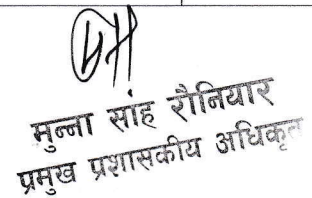 मुन्ना साह रौनियार
प्रमुख प्रशासकीय अधिकृत